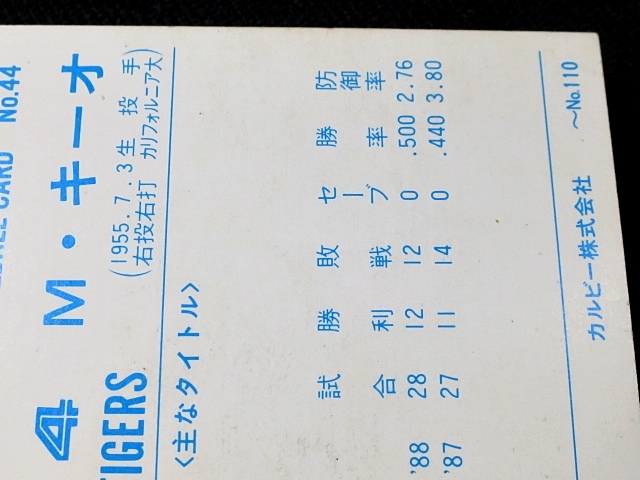 CARD No.44
4 M・キーオ
TIGERS (1955.7.3生 投手
右投右打 カリフォルニア大)
<主なタイトル>
試合 勝利 敗戦 セーブ 勝率 防御率
'88 28 12 12 0 .500 2.76
'87 27 11 14 0 .440 3.80
カルビー株式会社 〜No.110